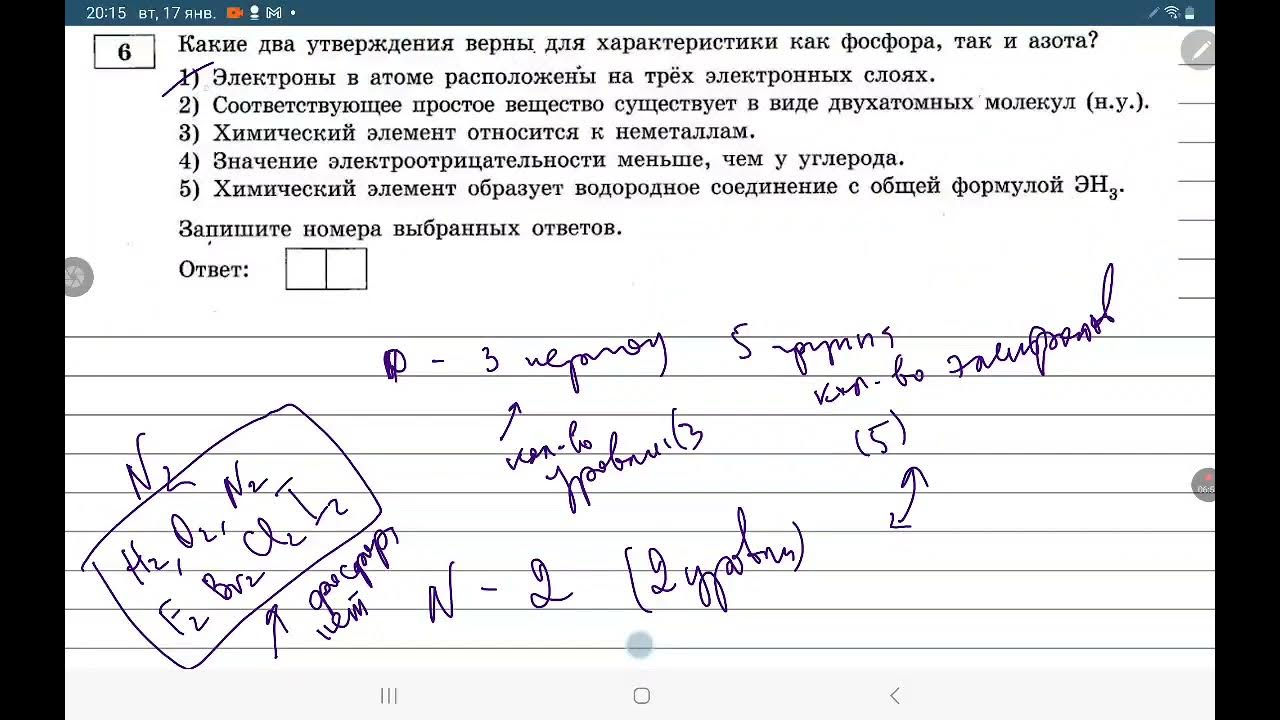 20:15 вт, 17 янв.
6
Какие два утверждения верны для характеристики как фосфора, так и азота?
1) Электроны в атоме расположены на трёх электронных слоях.
2) Соответствующее простое вещество существует в виде двухатомных молекул (н.у.).
3) Химический элемент относится к неметаллам.
4) Значение электроотрицательности меньше, чем у углерода.
5) Химический элемент образует водородное соединение с общей формулой ЭН₃.
Запишите номера выбранных ответов.
Ответ:
- 3 период 5 группа
кол-во электронов
кол-во
уровней (3
(5)
N₂
N₂ I₂
H₂, O₂, Cl₂
F₂ Br₂
фосфора
нет
N - 2 (2 уровня)